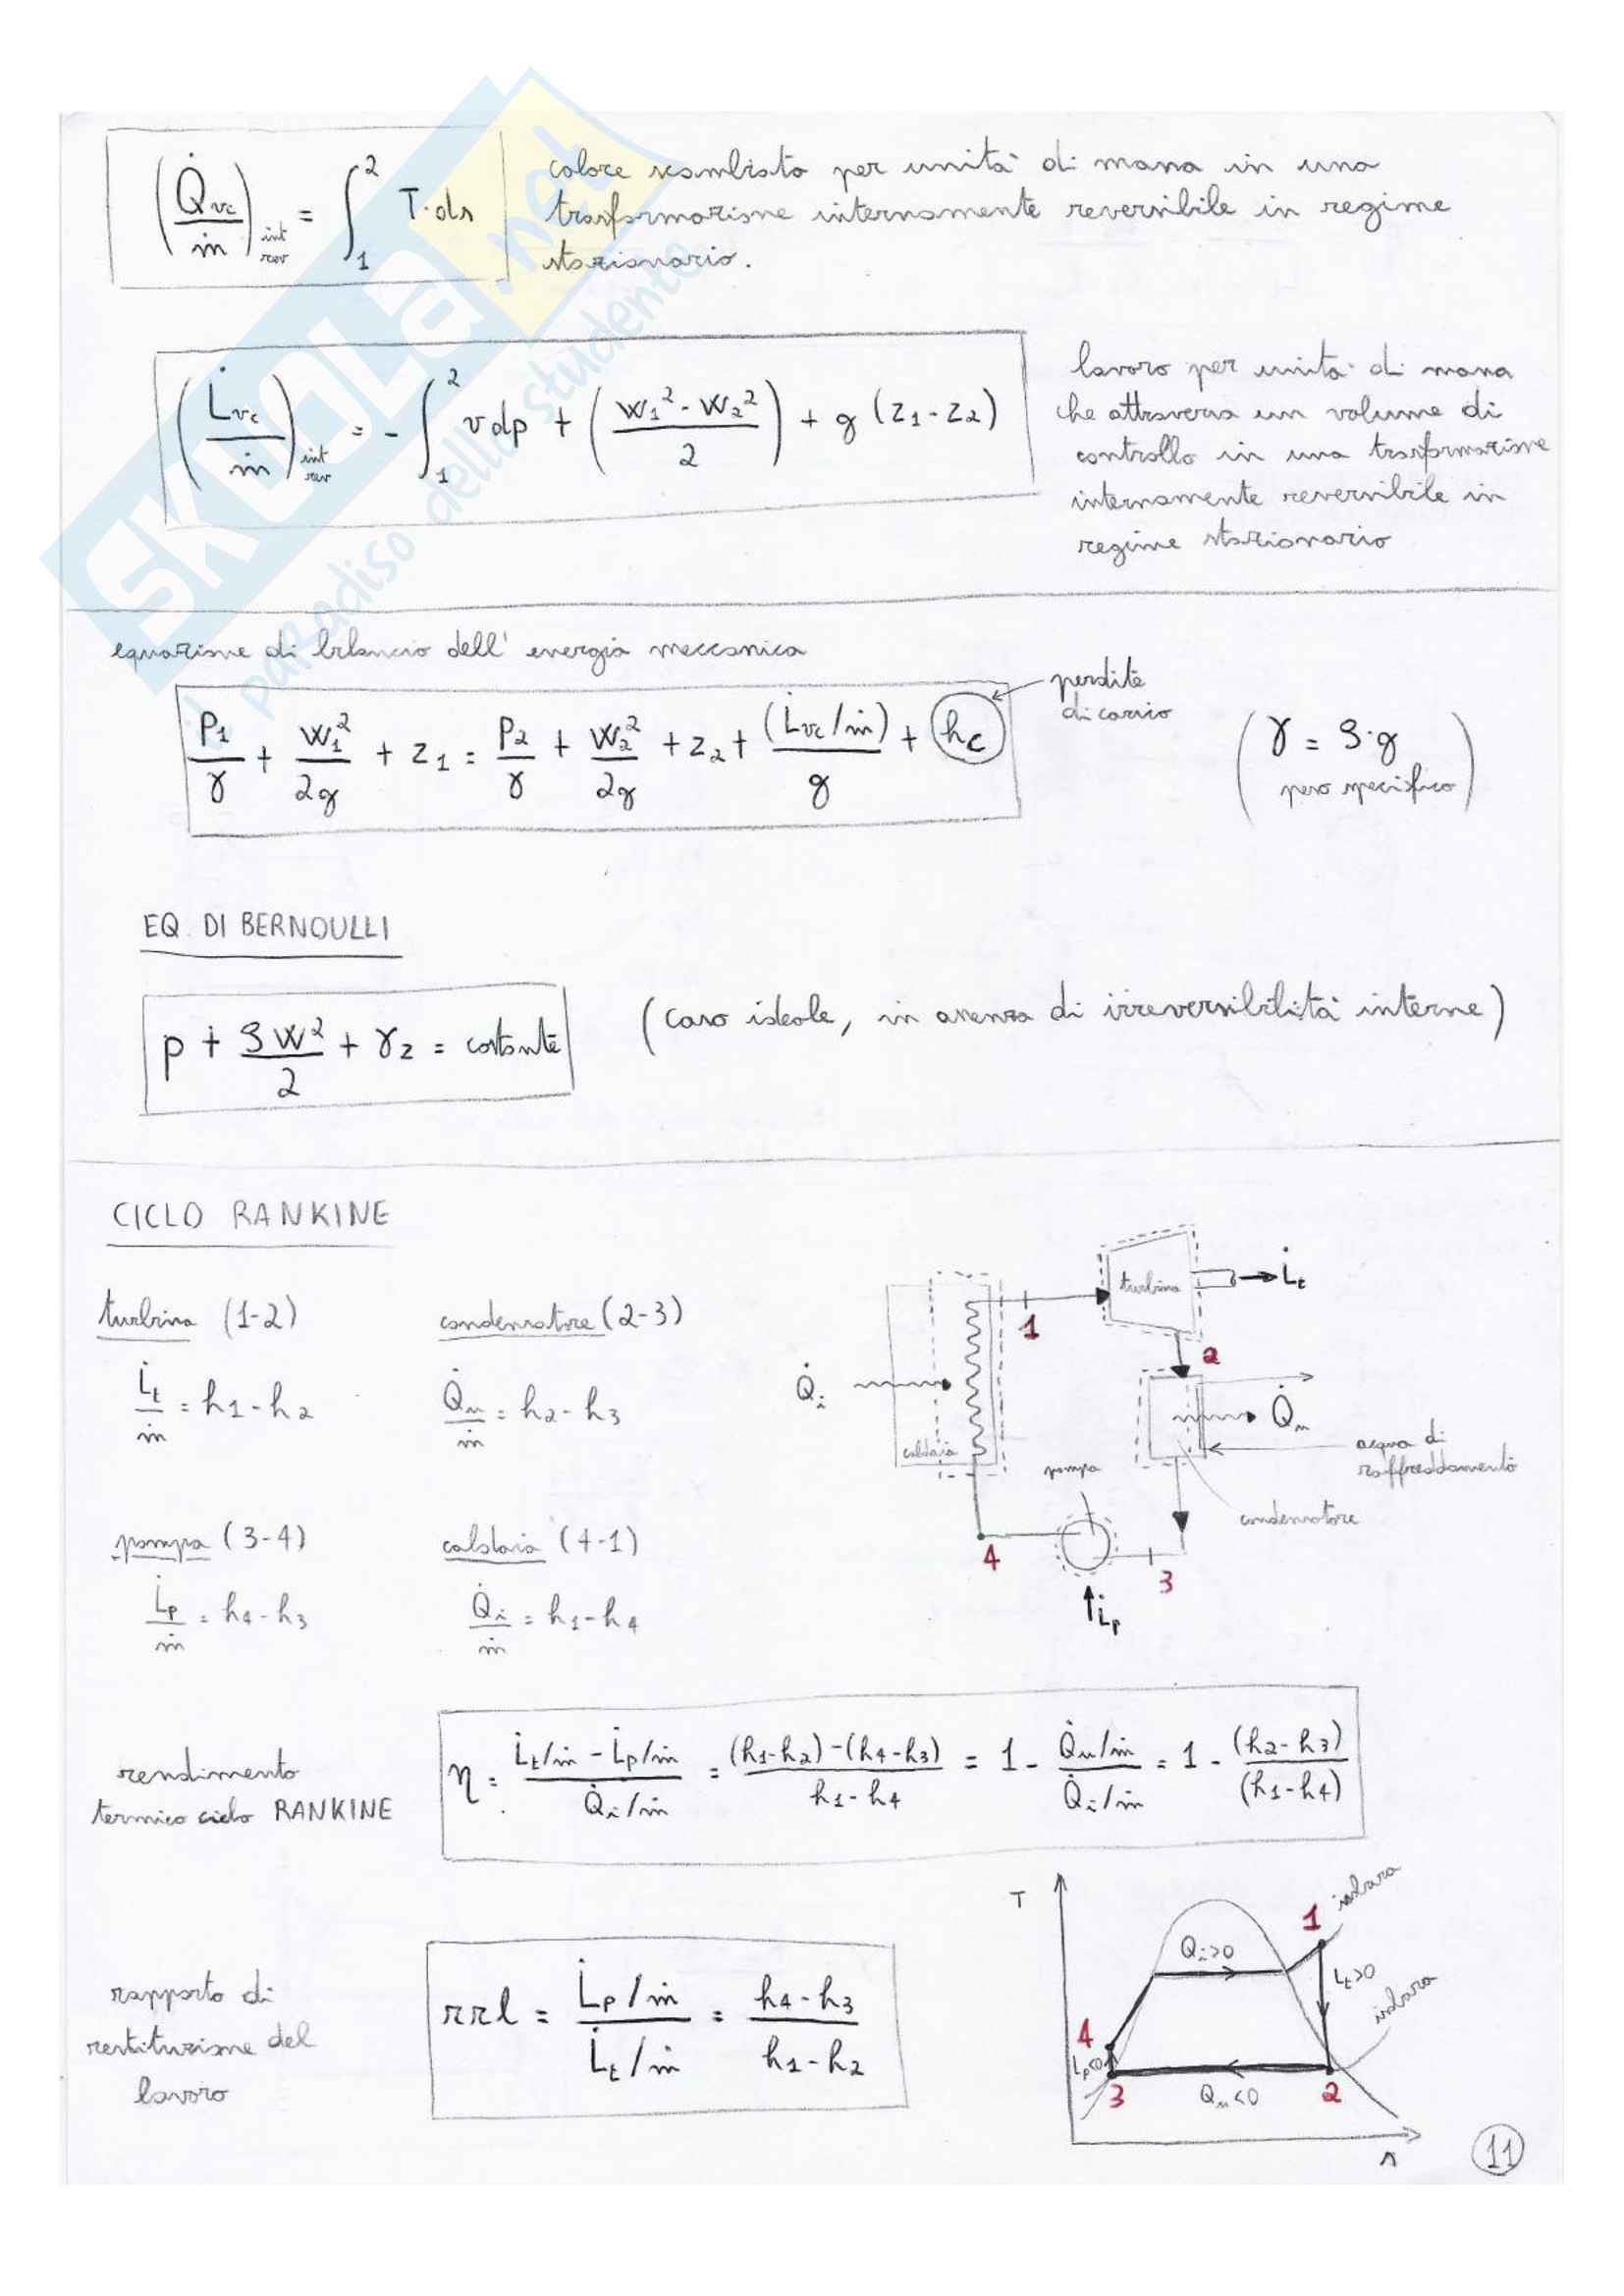 (Q̇vc/ṁ)int rev = ∫₁² T·ds
calore scambiato per unità di massa in una
trasformazione internamente reversibile in regime
stazionario.
(L̇vc/ṁ)int rev = - ∫₁² v dp + ((w₁² - w₂²)/2) + g (z₁ - z₂)
lavoro per unità di massa
che attraversa un volume di
controllo in una trasformazione
internamente reversibile in
regime stazionario
equazione di bilancio dell' energia meccanica
p₁/γ + w₁²/2g + z₁ = p₂/γ + w₂²/2g + z₂ + (L̇vc/ṁ)/g + hc
perdite
di carico
(γ = ρ·g
peso specifico)
EQ. DI BERNOULLI
p + ρw²/2 + γz = costante
(caso ideale, in assenza di irreversibilità interne)
CICLO RANKINE
turbina (1-2)
L̇t/ṁ = h₁ - h₂
condensatore (2-3)
Q̇u/ṁ = h₂ - h₃
pompa (3-4)
L̇p/ṁ = h₄ - h₃
caldaia (4-1)
Q̇i/ṁ = h₁ - h₄
Q̇i
caldaia
1
turbina
L̇t
2
Q̇u
acqua di
raffreddamento
condensatore
pompa
4
3
L̇p
rendimento
termico ciclo RANKINE
η = (L̇t/ṁ - L̇p/ṁ)/(Q̇i/ṁ) = ((h₁-h₂) - (h₄-h₃))/(h₁-h₄) = 1 - (Q̇u/ṁ)/(Q̇i/ṁ) = 1 - (h₂-h₃)/(h₁-h₄)
rapporto di
restituzione del
lavoro
rrl = (L̇p/ṁ)/(L̇t/ṁ) = (h₄-h₃)/(h₁-h₂)
T
isobara
1
Qi>0
Lt>0
isobara
4
Lp<0
3
Qu<0
2
s
11
SKUOLA.net
il paradiso dello studente